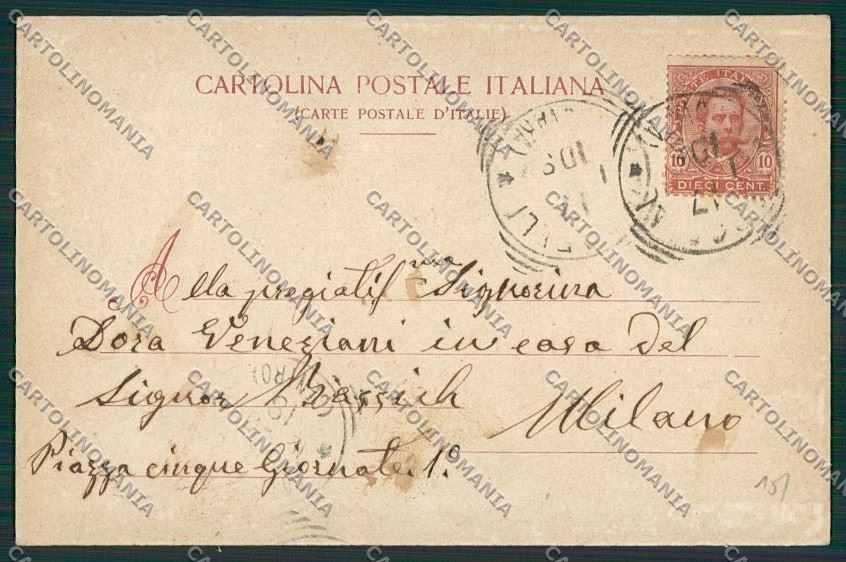 CARTOLINA POSTALE ITALIANA
(CARTE POSTALE D'ITALIE)
POSTE ITALIANE
10 10
DIECI CENT.
Alla pregiatissma Signorina
Dora Veneziani in casa del
Signor
Milano
Piazza cinque Giornate. 1º.
CARTOLINOMANIA